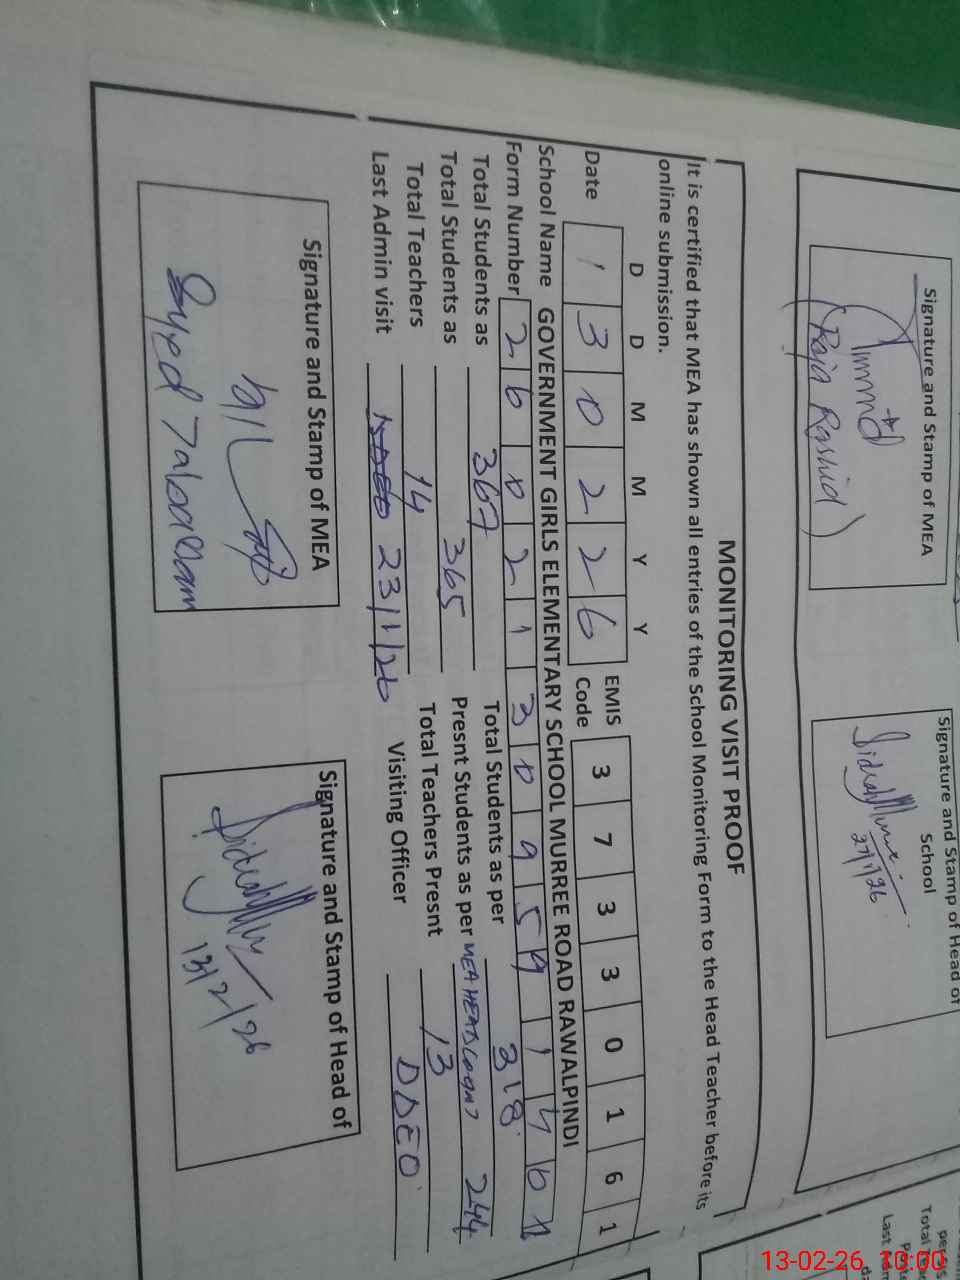 Signature and Stamp of MEA
(Raja Rashid)
Signature and Stamp of Head of
School
27/1/26
MONITORING VISIT PROOF
It is certified that MEA has shown all entries of the School Monitoring Form to the Head Teacher before its
online submission.
D D M M Y Y
Date 1 3 0 2 2 6 EMIS Code 3 7 3 3 0 1 6 1
School Name GOVERNMENT GIRLS ELEMENTARY SCHOOL MURREE ROAD RAWALPINDI
Form Number 2 6 0 2 1 3 0 9 5 9 1
Total Students as 367 Total Students as per 318
Total Students as 365 Presnt Students as per MEA HEAD COUNT 244
Total Teachers 14 Total Teachers Presnt 13
Last Admin visit 23/1/26 Visiting Officer DDEO
Signature and Stamp of MEA
Syed
Signature and Stamp of Head of
13/2/26
Total
Last
13-02-26 10:00